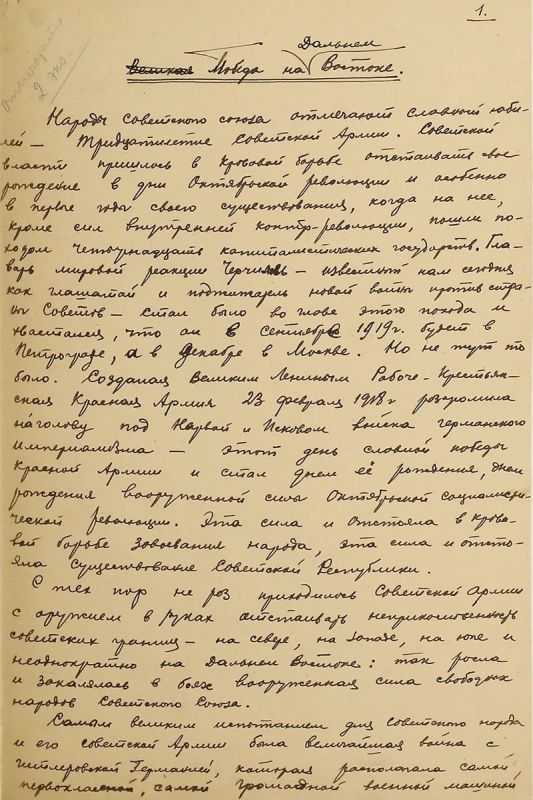 1.
отпечатать
2 экз.
Великая Победа на Дальнем Востоке.
Народы Советского союза отмечают славный юби-
лей — Тридцатилетие Советской Армии. Советской
власти пришлось в кровавой борьбе отстаивать свое
рождение в дни Октябрьской революции и особенно
в первые годы своего существования, когда на нее,
кроме сил внутренней контр-революции, пошли по-
ходом четырнадцать капиталистических государств. Гла-
варь мировой реакции Черчилль — известный нам сегодня
как глашатай и поджигатель новой войны против стра-
ны Советов — стал было во главе этого похода и
хвастался, что он в сентябре 1919 г. будет в
Петрограде, а в Декабре в Москве. Но не тут то
было. Созданная Великим Лениным Рабоче-Крестьян-
ская Красная Армия 23 февраля 1918 разгромила
наголову под Нарвой и Псковом войска германского
империализма — этот день славной победы
Красной Армии и стал днем её рождения, днем
рождения вооруженной силы Октябрьской социалисти-
ческой революции. Эта сила и отстояла в крова-
вой борьбе завоевания народа, эта сила и отсто-
яла существование Советской Республики.
С тех пор не раз приходилось Советской Армии
с оружием в руках отстаивать неприкосновенность
советских границ — на севере, на западе, на юге и
неоднократно на Дальнем Востоке: так росла
и закалялась в боях вооруженная сила свободных
народов Советского Союза.
Самым великим испытанием для советского народа
и его советской Армии была величайшая война с
гитлеровской Германией, которая располагала самой,
первоклассной, самой громадной военной машиной